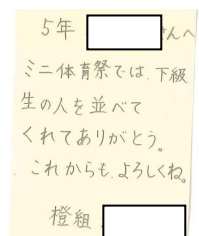 5年 さんへ
ミニ体育祭では、下級
生の人を並べて
くれてありがとう。
これからも、よろしくね。
橙組